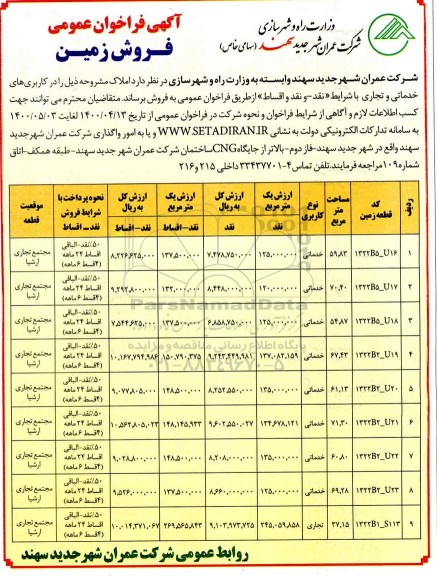 وزارت راه و شهرسازی
شرکت عمران شهر جدید سهند (سهامی خاص)
آگهی فراخوان عمومی
فروش زمین
شرکت عمران شهر جدید سهند وابسته به وزارت راه و شهرسازی در نظر دارد املاک مشروحه ذیل را در کاربری‌های
خدماتی و تجاری با شرایط «نقد-و نقد و اقساط» از طریق فراخوان عمومی به فروش برساند. متقاضیان محترم می توانند جهت
کسب اطلاعات لازم و آگاهی از شرایط فراخوان و نحوه شرکت در فراخوان عمومی از تاریخ ۱۴۰۰/۰۴/۱۳ لغایت ۱۴۰۰/۰۵/۰۳
به سامانه تدارکات الکترونیکی دولت به نشانی WWW.SETADIRAN.IR و یا به امور واگذاری شرکت عمران شهر جدید
سهند واقع در شهر جدید سهند-فاز دوم-بالاتر از جایگاه CNG ساختمان شرکت عمران شهر جدید سهند-طبقه همکف-اتاق
شماره ۱۰۹ مراجعه فرمایند. تلفن تماس ۴-۳۳۴۳۷۷۰۱ داخلی ۲۱۵ و ۲۱۶
ردیف | کد قطعه زمین | مساحت متر مربع | نوع کاربری | ارزش یک متر مربع نقد | ارزش کل به ریال نقد | ارزش یک متر مربع نقد-اقساط | ارزش کل به ریال نقد - اقساط | نحوه پرداخت با شرایط فروش نقد-اقساط | موقعیت قطعه
۱ | ۱۳۲۲B۵_U۱۶ | ۵۹,۸۳ | خدماتی | ۱۲۵,۰۰۰,۰۰۰ | ۷,۴۷۸,۷۵۰,۰۰۰ | ۱۳۷,۵۰۰,۰۰۰ | ۸,۲۲۶,۶۲۵,۰۰۰ | ۵۰٪نقد-الباقی اقساط ۲۴ ماهه (۴قسط ۶ ماهه) | مجتمع تجاری ارشیا
۲ | ۱۳۲۲B۵_U۱۷ | ۷۰,۴۰ | خدماتی | ۱۲۰,۰۰۰,۰۰۰ | ۸,۴۴۸,۰۰۰,۰۰۰ | ۱۳۲,۰۰۰,۰۰۰ | ۹,۲۹۲,۸۰۰,۰۰۰ | ۵۰٪نقد-الباقی اقساط ۲۴ ماهه (۴قسط ۶ ماهه) | مجتمع تجاری ارشیا
۳ | ۱۳۲۲B۵_U۱۸ | ۵۴,۸۷ | خدماتی | ۱۲۵,۰۰۰,۰۰۰ | ۶,۸۵۸,۷۵۰,۰۰۰ | ۱۳۷,۵۰۰,۰۰۰ | ۷,۵۴۴,۶۲۵,۰۰۰ | ۵۰٪نقد-الباقی اقساط ۲۴ ماهه (۴قسط ۶ ماهه) | مجتمع تجاری ارشیا
۴ | ۱۳۲۲B۲_U۱۹ | ۶۷,۴۳ | خدماتی | ۱۳۷,۰۸۲,۱۵۹ | ۹,۲۴۳,۴۴۹,۹۸۱ | ۱۵۰,۷۹۰,۳۷۵ | ۱۰,۱۶۷,۷۹۴,۹۸۶ | ۵۰٪نقد-الباقی اقساط ۲۴ ماهه (۴قسط ۶ ماهه) | مجتمع تجاری ارشیا
۵ | ۱۳۲۲B۲_U۲۰ | ۶۱,۱۳ | خدماتی | ۱۳۵,۰۰۰,۰۰۰ | ۸,۲۵۲,۵۵۰,۰۰۰ | ۱۴۸,۵۰۰,۰۰۰ | ۹,۰۷۷,۸۰۵,۰۰۰ | ۵۰٪نقد-الباقی اقساط ۲۴ ماهه (۴قسط ۶ ماهه) | مجتمع تجاری ارشیا
۶ | ۱۳۲۲B۲_U۲۱ | ۷۱,۳۰ | خدماتی | ۱۳۴,۶۷۸,۱۲۱ | ۹,۶۰۲,۵۵۰,۰۲۷ | ۱۴۸,۱۴۵,۹۳۳ | ۱۰,۵۶۲,۸۰۵,۰۲۳ | ۵۰٪نقد-الباقی اقساط ۲۴ ماهه (۴قسط ۶ ماهه) | مجتمع تجاری ارشیا
۷ | ۱۳۲۲B۲_U۲۲ | ۶۰,۸۰ | خدماتی | ۱۳۵,۰۰۰,۰۰۰ | ۸,۲۰۸,۰۰۰,۰۰۰ | ۱۴۸,۵۰۰,۰۰۰ | ۹,۰۲۸,۸۰۰,۰۰۰ | ۵۰٪نقد-الباقی اقساط ۲۴ ماهه (۴قسط ۶ ماهه) | مجتمع تجاری ارشیا
۸ | ۱۳۲۲B۲_U۲۳ | ۶۹,۲۸ | خدماتی | ۱۲۵,۰۰۰,۰۰۰ | ۸,۶۶۰,۰۰۰,۰۰۰ | ۱۳۷,۵۰۰,۰۰۰ | ۹,۵۲۶,۰۰۰,۰۰۰ | ۵۰٪نقد-الباقی اقساط ۲۴ ماهه (۴قسط ۶ ماهه) | مجتمع تجاری ارشیا
۹ | ۱۳۲۲B۱_S۱۱۳ | ۳۷,۱۵ | تجاری | ۲۴۵,۰۵۹,۸۵۸ | ۹,۱۰۳,۹۷۳,۷۲۵ | ۲۶۹,۵۶۵,۸۴۳ | ۱۰,۰۱۴,۳۷۱,۰۶۷ | ۵۰٪نقد-الباقی اقساط ۲۴ ماهه (۴قسط ۶ ماهه) | مجتمع تجاری ارشیا
ParsNamadData
پایگاه رسانی مناقصه و مزایده
۰۲۱-۸۸۳۴۹۶۷۰-۵
روابط عمومی شرکت عمران شهر جدید سهند